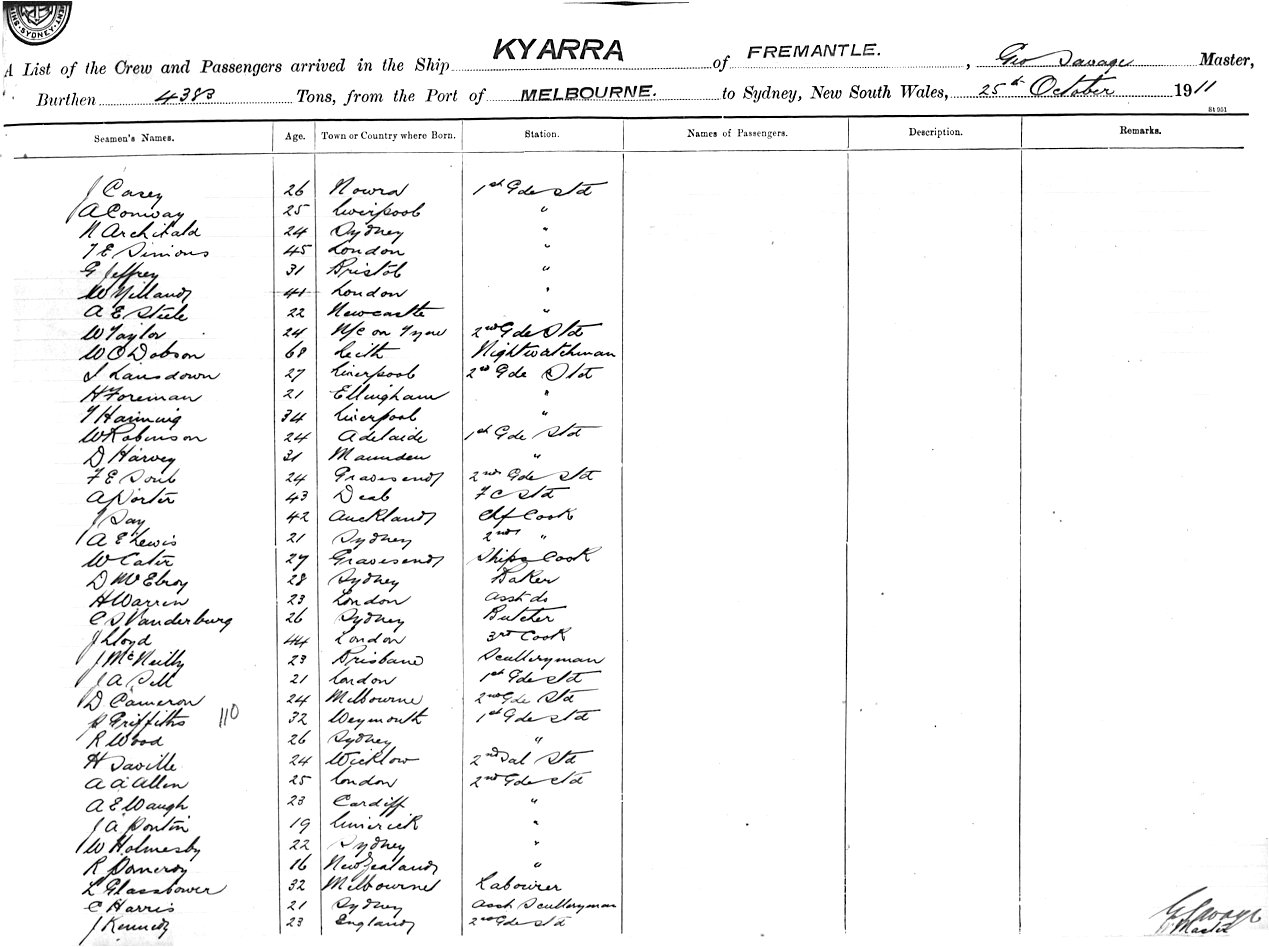 SYDNEY
A List of the Crew and Passengers arrived in the Ship KYARRA of FREMANTLE. , Geo Savage Master,
Burthen 4383 Tons, from the Port of MELBOURNE. to Sydney, New South Wales, 25th October 1911
St 951
Seamen's Names. Age. Town or Country where Born. Station. Names of Passengers. Description. Remarks.
J Casey 26 Nowra 1st Gde Std
A Conway 25 Liverpool "
N Archibald 24 Sydney "
T E Simons 45 London "
G Jeffrey 31 Bristol "
W 41 London "
A E Steele 22 Newcastle "
W Taylor 24 N/c on Tyne 2nd Gde Std
W O Dobson 68 Leith Nightwatchman
J Lansdown 27 Liverpool 2nd Gde Std
H Foreman 21 Ellingham "
T 34 Liverpool "
W Robinson 24 Adelaide 1st Gde Std
D Harvey 31 "
F E 24 Gravesend 2nd Gde Std
A Porter 43 Deal F C Std
J Day 42 Auckland Chf Cook
A E Lewis 21 Sydney 2nd "
W Cater 27 Gravesend Ships Cook
D McElroy 28 Sydney Baker
H Warren 23 London Asst do
C S Vanderburg 26 Sydney Butcher
J Lloyd 44 London 3rd Cook
J McNeilly 23 Brisbane Sculleryman
J A 21 London 1st Gde Std
D Cameron 24 Melbourne 2nd Gde Std
Griffiths 110 32 Weymouth 1st Gde Std
R Wood 26 Sydney "
H Saville 24 Wicklow 2nd Sal Std
A A Allen 25 London 2nd Gde Std
A E Waugh 23 Cardiff "
J A Pontin 19 Limerick "
W Holmesby 22 Sydney "
R Pomeroy 16 New Zealand "
L Glassbower 32 Melbourne Labourer
C Harris 21 Sydney Asst Sculleryman
J Kennedy 23 England 2nd Gde Std
G Savage
Master